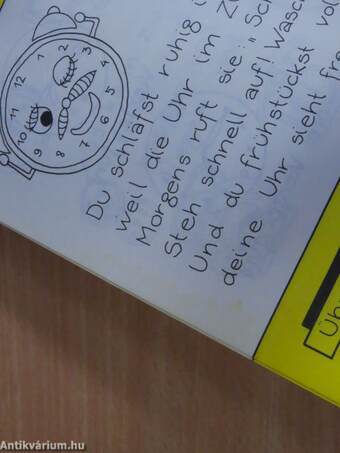 12
1
2
3
4
5
6
7
8
9
10
11
Du schläfst ruhig
weil die Uhr im
Morgens ruft sie: "
Steh schnell auf!
Und du frühstückst
deine Uhr sieht
Antikvárium.hu